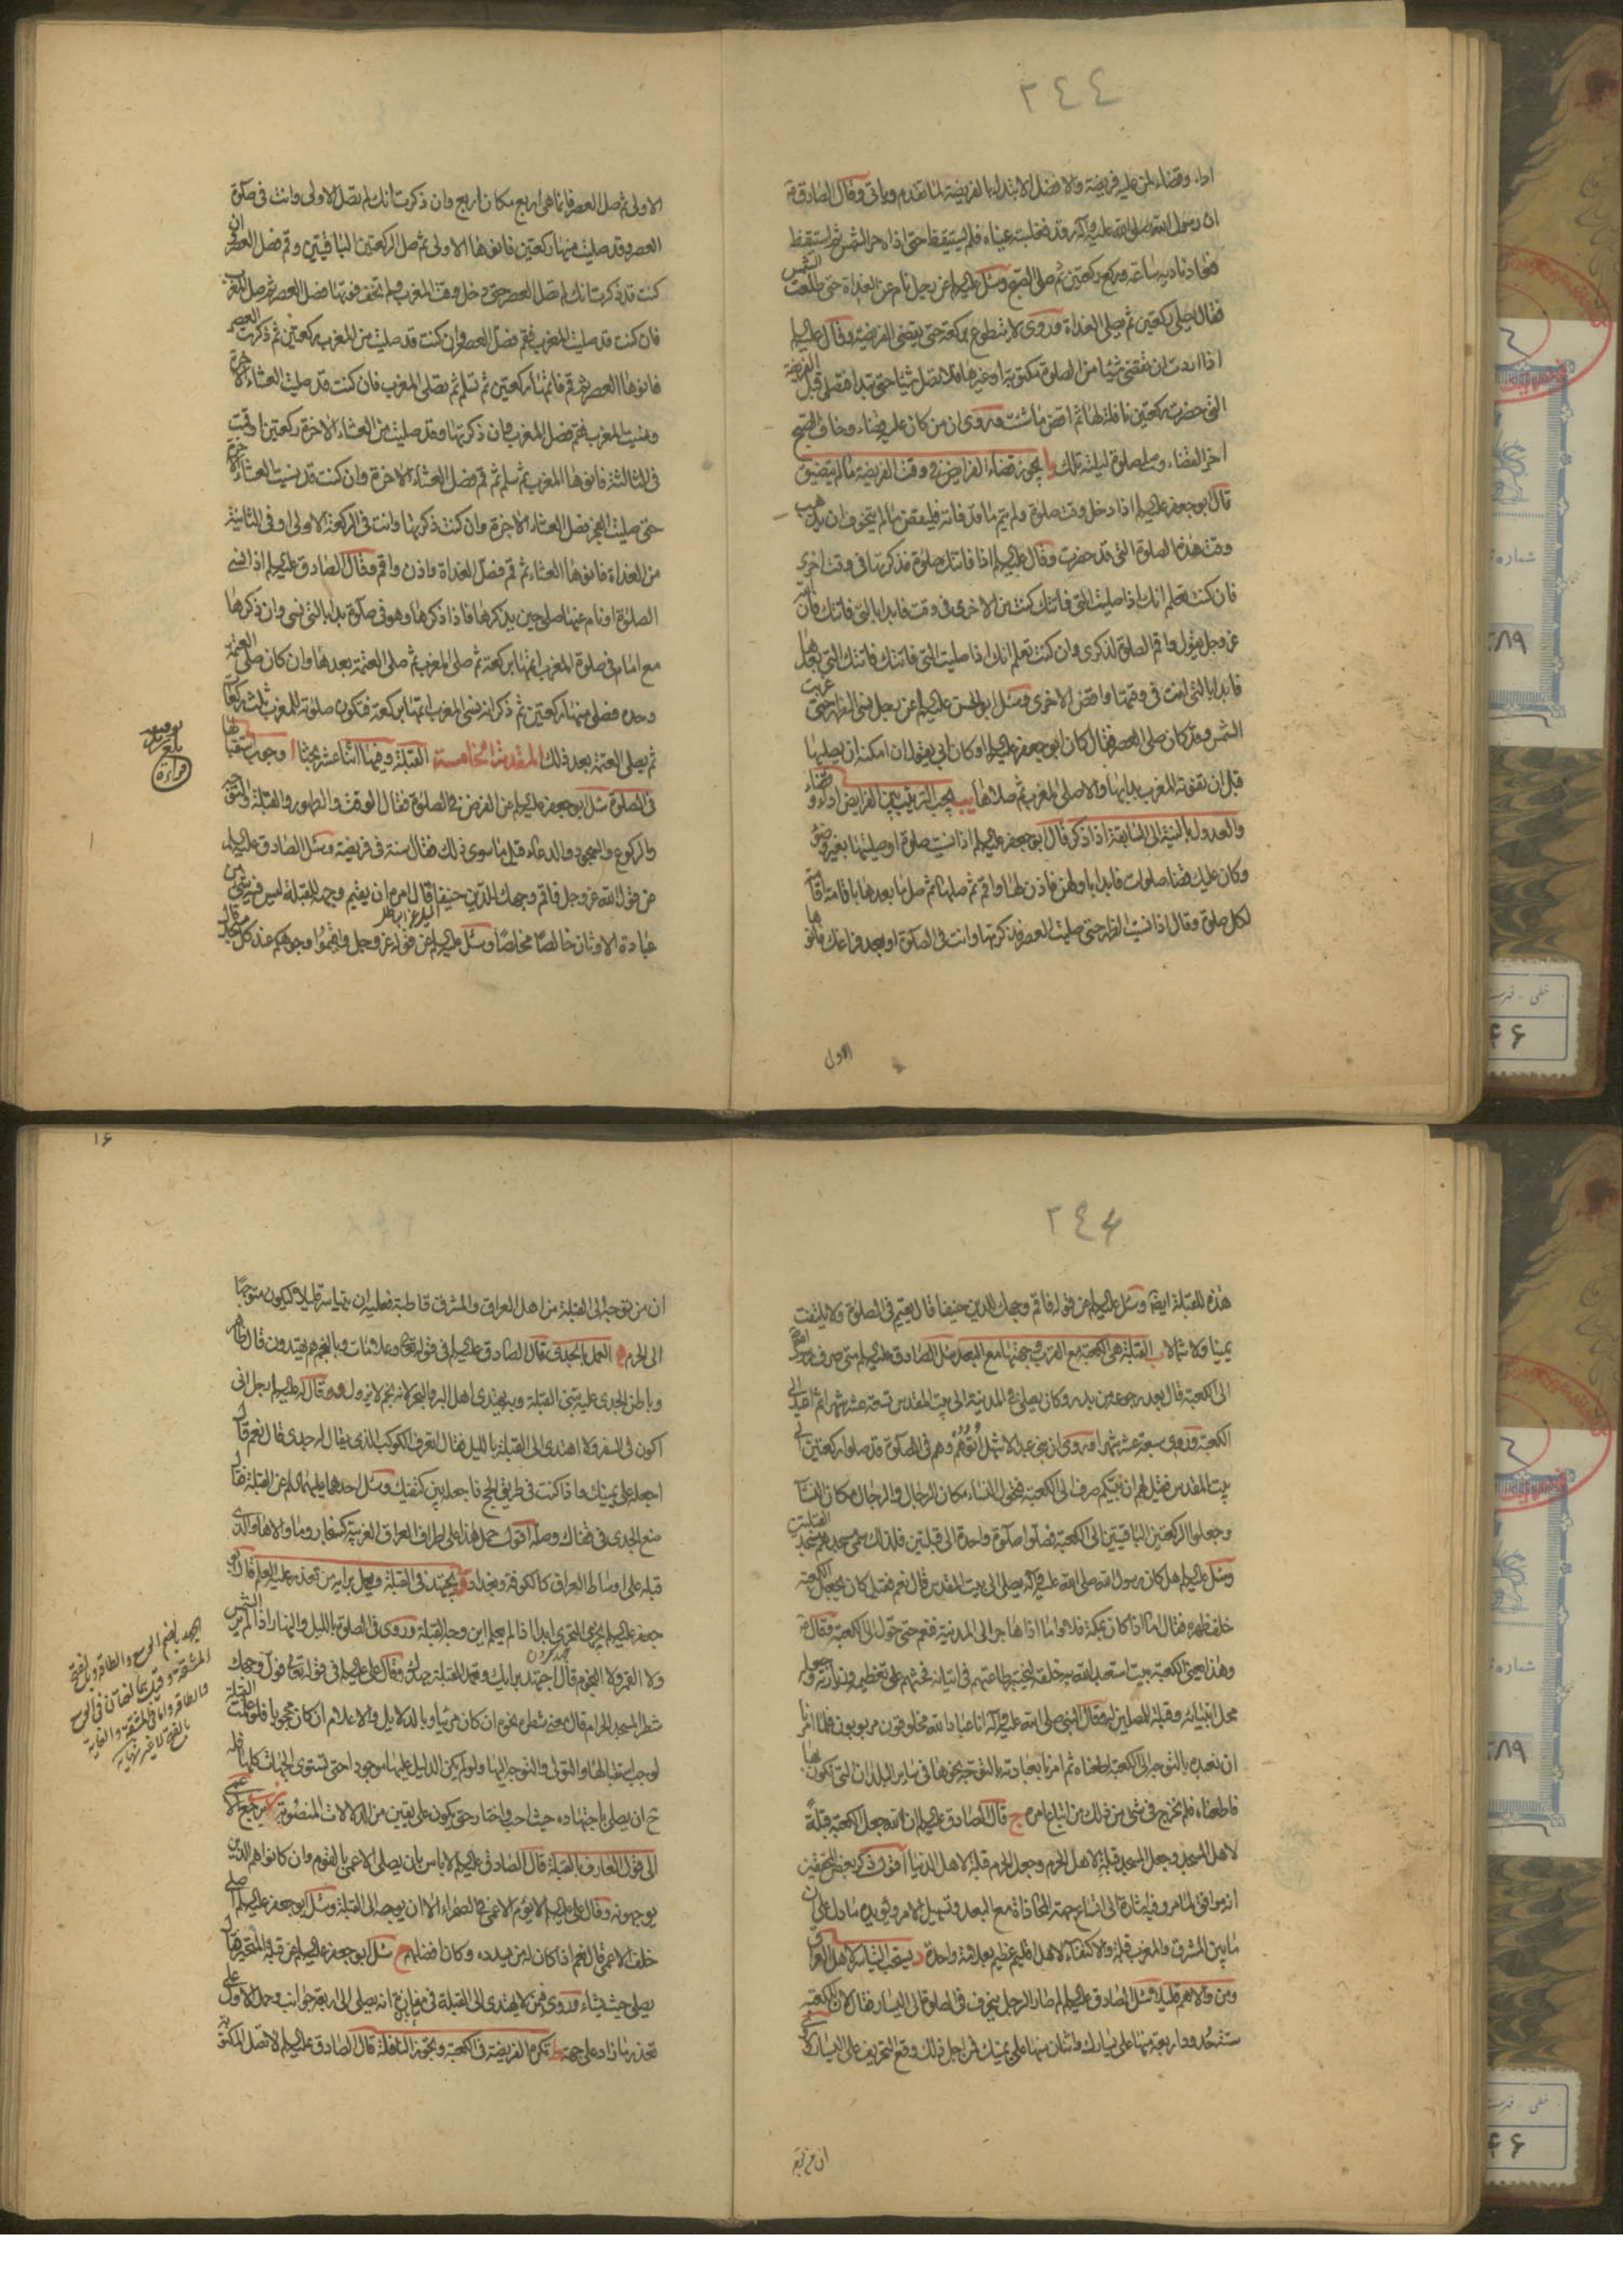 ٢٤٤
اداء وقضاء لمن عليه فريضة والافضل الابتداء بالفريضة لما تقدم وياتى وقال الصادق ع
ان رسول الله صلى الله عليه وآله رقد فغلبته عيناه فلم يستيقظ حتى اذاه حر الشمس ثم استيقظ
فعاد ناديه ساعة وركع ركعتين ثم صلى الصبح وسئل عليه السلم عن رجل نام عن الغداة حتى طلعت الشمس
فقال يصلى ركعتين ثم يصلى الغداة وروى لا يتطوع بركعة حتى يقضى الفريضة وقال عليه السلم
اذا اردت ان تقضى شيئا من الصلوة مكتوبة او غيرها فلا تصل شيئا حتى تبدأ فتصلى قبل الفريضة
التى حضرت ركعتين نافلة لها ثم اقض ما شئت وروى ان من كان عليه قضاء وخاف الصبح
اخر القضاء وصلى صلوة ليلته تلك يا يجوز قضاء الفرايض فى وقت الفريضة ما لم يتضيق
قال ابو جعفر عليه السلم اذا دخل وقت صلوة ولم يتم ما قد فاته فليقض ما لم يتخوف ان يذهب
وقت هذه الصلوة التى قد حضرت وقال عليه السلم اذا فاتتك صلوة فذكرتها فى وقت اخرى
فان كنت تعلم انك اذا صليت التى فاتتك كنت من الاخرى فى وقت فابدا بالتى فاتتك فان الله
عز وجل يقول واقم الصلوة لذكرى وان كنت تعلم انك اذا صليت التى فاتتك فاتتك التى بعدها
فابدا بالتى انت فى وقتها واقض الاخرى وسئل ابو الحسن عليه السلم عن رجل نسى الظهر حتى غربت
الشمس وقد كان صلى العصر فقال كان ابو جعفر عليه السلم او كان ابى يقول ان امكنه ان يصليها
قبل ان تفوته المغرب بدا بها والا صلى المغرب ثم صلاها يب يجب الترتيب بين الفرايض اداء وقضاء
والعدول بالنية الى السابقة اذا ذكر قال ابو جعفر عليه السلم اذا نسيت صلوة او صليتها بغير وضوء
وكان عليك قضاء صلوات فابدا باولهن فاذن لها واقم ثم صلها ثم صل ما بعدها باقامة اقامة
لكل صلوة وقال اذا نسيت الظهر حتى صليت العصر فذكرتها وانت فى الصلوة او بعد فراغك فانوها
الاولى
الاولى ثم صل العصر فانما هى اربع مكان اربع وان ذكرت انك لم تصل الاولى وانت فى صلوة
العصر وقد صليت منها ركعتين فانوها الاولى ثم صل الركعتين الباقيتين وقم فصل العصر وان
كنت قد ذكرت انك لم تصل العصر حتى دخل وقت المغرب ولم تخف فوتها فصل العصر ثم صل المغرب
فان كنت قد صليت المغرب فقم فصل العصر وان كنت قد صليت من المغرب ركعتين ثم ذكرت العصر
فانوها العصر ثم قم فاتمها ركعتين ثم تسلم ثم تصلى المغرب فان كنت قد صليت العشاء الاخرة
ونسيت المغرب فقم فصل المغرب وان ذكرتها وقد صليت من العشاء الاخرة ركعتين او قمت
فى الثالثة فانوها المغرب ثم سلم ثم قم فصل العشاء الاخرة وان كنت قد نسيت العشاء الاخرة
حتى صليت الفجر فصل العشاء الاخرة وان كنت ذكرتها وانت فى الركعة الاولى او فى الثانية
من الغداة فانوها العشاء ثم قم فصل الغداة واذن واقم وقال الصادق عليه السلم اذا نسى
الصلوة او نام عنها صلى حين يذكرها فاذا ذكرها وهو فى صلوة بدا بالتى نسى وان ذكرها
مع امام فى صلوة المغرب اتمها بركعة ثم صلى المغرب ثم صلى العتمة بعدها وان كان صلى العتمة
وحده فصلى منها ركعتين ثم ذكر انه نسى المغرب اتمها بركعة فتكون صلوته للمغرب ثلث ركعات
ثم يصلى العتمة بعد ذلك المقدمة الخامسة القبلة وفيها اثنا عشر بحثا ا وجوب استقبالها
فى الصلوة سئل ابو جعفر عليه السلم عن الفرض فى الصلوة فقال الوقت والطهور والقبلة والتوجه
والركوع والسجود والدعاء قيل ما سوى ذلك فقال سنة فى فريضة وسئل الصادق عليه السلم
عن قول الله عز وجل فاقم وجهك للدين حنيفا قال امره ان يقيم وجهه للقبلة ليس فيه شئ من
عبادة الاوثان خالصا مخلصا وسئل عليه السلم عن قوله عز وجل واقيموا وجوهكم عند كل مسجد قال
بلغ
قراءة
١۶
٢٤٦
هذه للقبلة ايضا وسئل عليه السلم عن قوله فاقم وجهك للدين حنيفا قال يقيم فى الصلوة ولا يلتفت
يمينا ولا شمالا ب القبلة هى الكعبة مع القرب وجهتها مع البعد سئل الصادق عليه السلم متى صرف رسول الله
الى الكعبة قال بعد رجوعه من بدر وكان يصلى فى المدينة الى بيت المقدس تسعة عشر شهرا ثم اعيد الى
الكعبة وروى سبعة عشر شهرا وروى ان بنى عبد الاشهل اتوهم وهم فى الصلوة قد صلوا ركعتين الى
بيت المقدس فقيل لهم ان نبيكم صرف الى الكعبة فتحول النساء مكان الرجال والرجال مكان النساء
وجعلوا الركعتين الباقيتين الى الكعبة فصلوا صلوة واحدة الى قبلتين فلذلك سمى مسجدهم مسجد القبلتين
وسئل عليه السلم هل كان رسول الله صلى الله عليه وآله يصلى الى بيت المقدس قال نعم فقيل كان يجعل الكعبة
خلف ظهره فقال اما اذا كان بمكة فلا واما اذا هاجر الى المدينة فنعم حتى حول الى الكعبة وقال ع
وهذا يعنى الكعبة بيت استعبد الله به خلقه ليختبر طاعتهم فى اتيانه فحثهم على تعظيمه وزيارته وجعله
محل انبيائه وقبلة للمصلين له وقال النبى صلى الله عليه وآله انا عباد الله مخلوقون مربوبون فلما امرنا
ان نعبده بالتوجه الى الكعبة اطعناه ثم امرنا بعبادته بالتوجه نحوها فى ساير البلدان التى نكون بها
فاطعناه فلم نخرج فى شئ من ذلك من اتباع امره ج قال الصادق عليه السلم ان الله جعل الكعبة قبلة
لاهل المسجد وجعل المسجد قبلة لاهل الحرم وجعل الحرم قبلة لاهل الدنيا اقول ذكر بعض المحققين
انه موافق لما مر وفيه اشارة الى اتساع جهة المحاذاة مع البعد وتسهيل الامر ويؤيده ما دل على ان
ما بين المشرق والمغرب قبلة والاكتفاء لاهل اقليم عظيم بعلامة واحدة د يستحب التياسر لاهل العراق
ومن والاهم قليلا سئل الصادق عليه السلم لم صار الرجل ينحرف فى الصلوة الى اليسار فقال لان للكعبة
ستة حدود اربعة منها على يسارك واثنان منها على يمينك فمن اجل ذلك وقع التحريف على اليسار
ان من توجه الى القبلة من اهل العراق والمشرق قاطبة فعليه ان يتياسر قليلا ليكون متوجها
الى الحرم ه العمل بالجدى قال الصادق عليه السلم فى قوله تع وعلامات وبالنجم هم يهتدون قال ظاهر
وباطن الجدى عليه تبنى القبلة وبه يهتدى اهل البر والبحر لانه نجم لا يزول وقال له عليه السلم رجل انى
اكون فى السفر ولا اهتدى الى القبلة بالليل فقال اتعرف الكوكب الذى يقال له جدى قال نعم قال
اجعله على يمينك واذا كنت فى طريق الحج فاجعله بين كتفيك وسئل احدهما عليهما السلم عن القبلة فقال
ضع الجدى فى قفاك وصل اقول حمل هذا على اطراف العراق الغربية كسنجار وما والاها والذى
قبله على اوساط العراق كالكوفة وبغداد و يجتهد فى القبلة ويعمل برايه من تعذر عليه العلم قال ابو
جعفر عليه السلم يجزى التحرى ابدا اذا لم يعلم اين وجه القبلة وروى فى الصلوة بالليل والنهار اذا لم ير الشمس
ولا القمر ولا النجوم قال اجتهد برايك وتعمد القبلة جهدك وقال على عليه السلم فى قوله تع فول وجهك
شطر المسجد الحرام قال معنى شطره نحوه ان كان مرئيا وبالدلايل والاعلام ان كان محجوبا فلو علمت القبلة
لوجب استقبالها والتولى والتوجه اليها ولو لم يكن الدليل عليها موجودا حتى تستوى الجهات كلها فله
ح ان يصلى باجتهاده حيث احب واختار حتى يكون على يقين من الدلالات المنصوبة ز يرجع الاعمى
الى قول العارف بالقبلة قال الصادق عليه السلم لا باس بان يصلى الاعمى بالقوم وان كانوا هم الذين
يوجهونه وقال على عليه السلم لا يؤم الاعمى فى الصحراء الا ان يوجه الى القبلة وسئل ابو جعفر عليه السلم اصلى
خلف الاعمى قال نعم اذا كان له من يسدده وكان افضلهم ح سئل ابو جعفر عليه السلم عن قبلة المتحير فقال
يصلى حيث يشاء وروى فيمن لا يهتدى الى القبلة فى مفازة انه يصلى الى اربعة جوانب وحمل الاول على
تعذر ما زاد على جهة ط تكره الفريضة فى الكعبة وتجوز النافلة قال الصادق عليه السلم لا تصل المكتوبة
الجهد بالضم الوسع والطاقة وبالفتح
المشقة وقيل هما لغتان فى الوسع
والطاقة واما فى المشقة والغاية
فالفتح لا غير نهاية